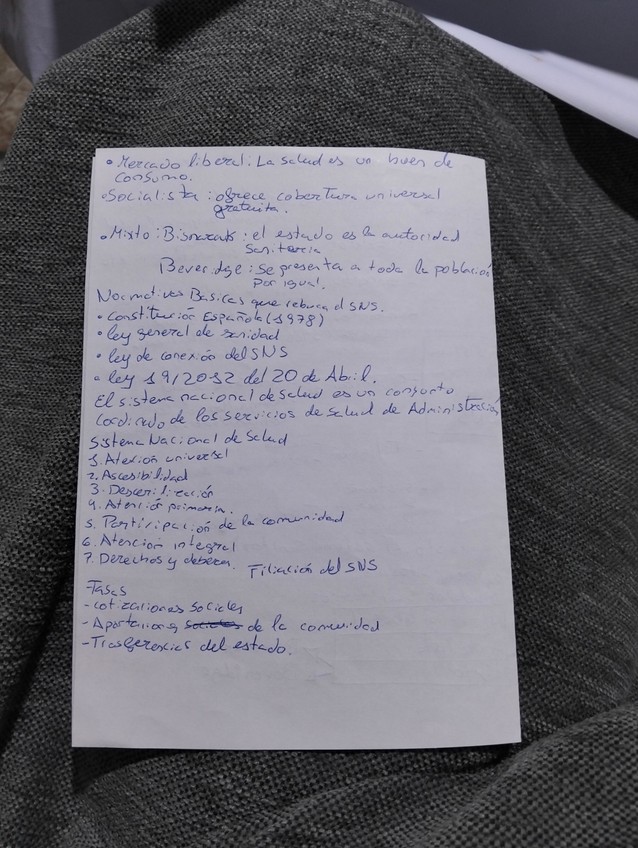 • Mercado liberal: La salud es un buen de
consumo.
• Socialista: ofrece cobertura universal
gratuita.
• Mixto: Bismarak: el estado es la autoridad
Sanitaria
Beveridge: se presenta a toda la población
por igual.
Normativas Basicas que sd SNS.
• Constitución Española (1978)
• ley general de sanidad
• ley de conexión del SNS
• ley 19/2012 del 20 de Abril.
El sistema nacional de salud es un conjunto
Cordinado de los servicios de salud de Administración
Sistema Nacional de Salud
1. Atención universal
2. Accesibilidad
3.
4. Atención primaria.
5. Participación de la comunidad
6. Atención integral
7. Derechos y deberes. Filiación del SNS
-Tasas
- cotizaciones sociales
- Aportaciones de la comunidad
- Trasferencias del estado.